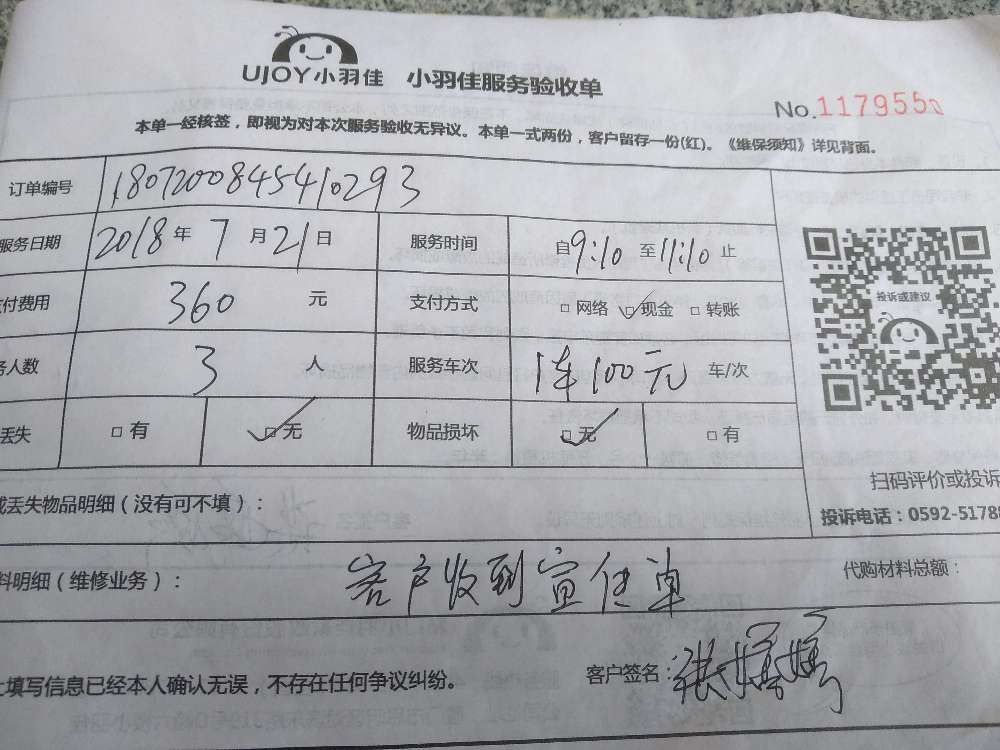 UJOY小羽佳 小羽佳服务验收单
No.1179550
本单一经核签，即视为对本次服务验收无异议。本单一式两份，客户留存一份(红)。《维保须知》详见背面。
订单编号 1807200845410293
服务日期 2018年 7月21日 服务时间 自9:10至11:10止
付费用 360 元 支付方式 □网络 ☑现金 □转账
务人数 3 人 服务车次 1车100元 车/次
丢失 □有 ☑无 物品损坏 ☑无 □有
投诉或建议
扫码评价或投诉
或丢失物品明细（没有可不填）：
投诉电话：0592-5178
料明细（维修业务）： 客户收到宣传单 代购材料总额：
上填写信息已经本人确认无误，不存在任何争议纠纷。 客户签名：张